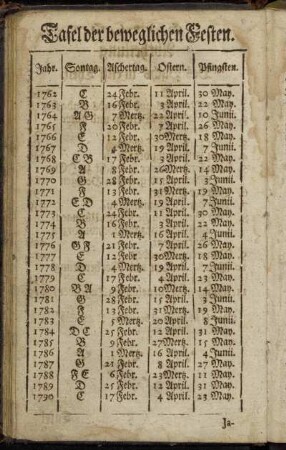 Tafel der beweglichen Festen.
Jahr. Sontag. Aschertag. Ostern. Pfingsten.
1762 C 24 Febr. 11 April. 30 May.
1763 B 16 Febr. 3 April. 22 May.
1764 A G 7 Mertz. 22 April. 10 Junii.
1765 F 20 Febr. 7 April. 26 May.
1766 E 12 Febr. 30 Mertz. 18 May.
1767 D 4 Mertz. 19 April. 7 Junii.
1768 C B 17 Febr. 3 April. 22 May.
1769 A 8 Febr. 26 Mertz. 14 May.
1770 G 28 Febr. 15 April. 3 Junii.
1771 F 13 Febr. 31 Mertz. 19 May.
1772 E D 4 Mertz. 19 April. 7 Junii.
1773 C 24 Febr. 11 April. 30 May.
1774 B 16 Febr. 3 April. 22 May.
1775 A 1 Mertz. 16 April. 4 Junii.
1776 G F 21 Febr. 7 April. 26 May.
1777 E 12 Febr. 30 Mertz. 18 May.
1778 D 4 Mertz. 19 April. 7 Junii.
1779 C 17 Febr. 4 April. 23 May.
1780 B A 9 Febr. 10 Mertz. 14 May.
1781 G 28 Febr. 15 April. 3 Junii.
1782 F 13 Febr. 31 Mertz. 19 May.
1783 E 5 Mertz. 20 April. 8 Junii.
1784 D C 25 Febr. 12 April. 31 May.
1785 B 9 Febr. 27 Mertz. 15 May.
1786 A 1 Mertz. 16 April. 4 Junii.
1787 G 21 Febr. 8 April. 27 May.
1788 F E 6 Febr. 23 Mertz. 11 May.
1789 D 25 Febr. 12 April. 31 May.
1790 C 17 Febr. 4 April. 23 May.
Jä-